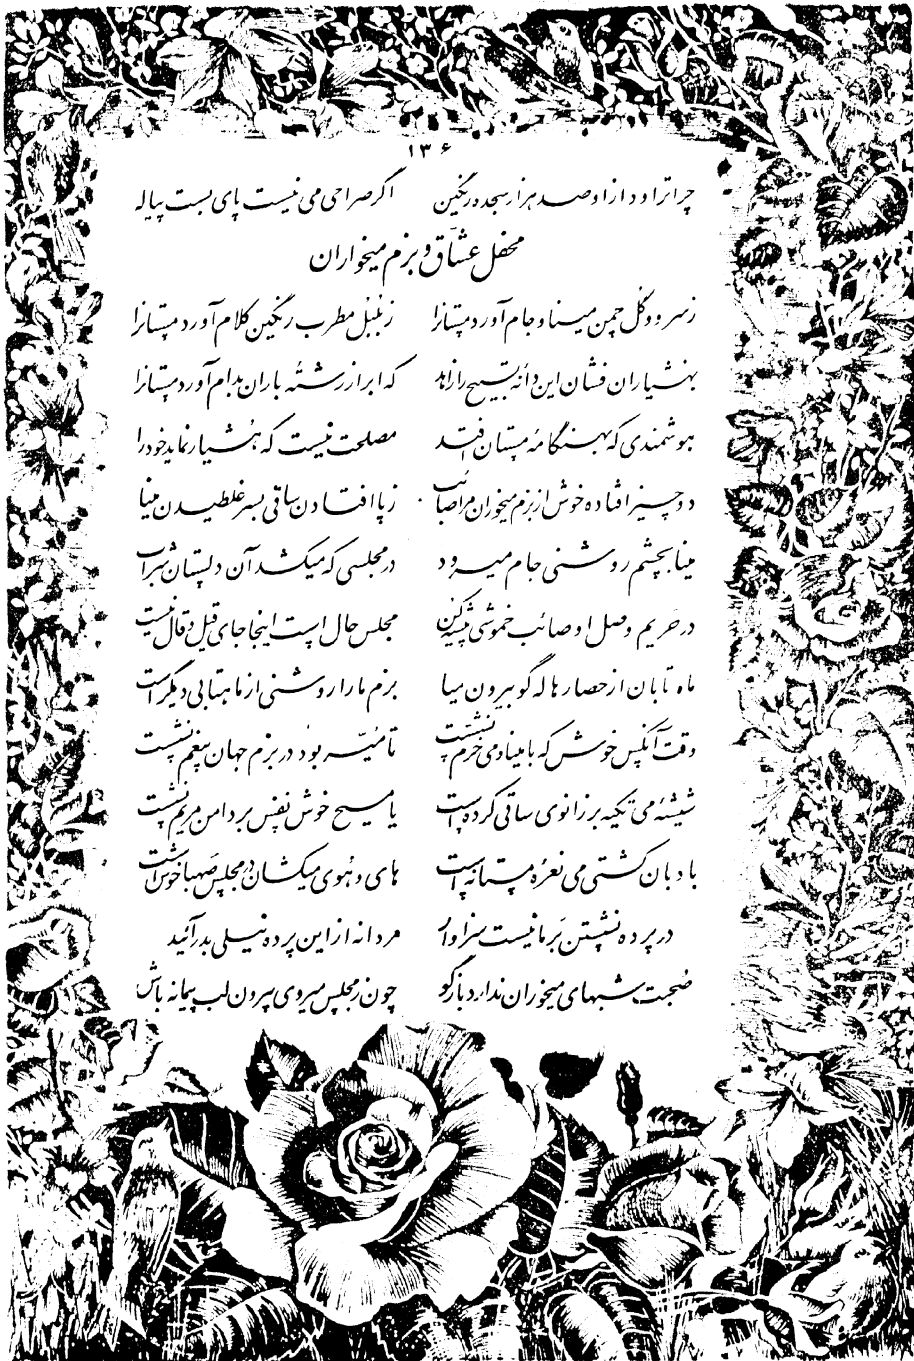 ۱۳۶
چرا تراود ازاو صد هزار سجده رنگین اگر صراحی می نیست پای بست پیاله
محفل عشاق و بزم میخواران
ز سرو و گل چمن مینا و جام آورد مستانرا ز بلبل مطرب رنگین کلام آورد مستانرا
بهشیاران فشان این دانه تسبیح را زاهد که ابر از رشته باران بدام آورد مستانرا
هوشمندی که بهنگامه مستان افتد مصلحت نیست که هشیار نماید خود را
دو چیز افتاده خوش از بزم میخوران مرا صائب ز پا افتادن ساقی بسر غلطیدن مینا
مینا بچشم روشنی جام میرود در مجلسی که میکشد آن دلستان شراب
در حریم وصل او صائب خموشی پیشه کن مجلس حال است اینجا جای قیل و قال نیست
ماه تابان از حصار هاله گو بیرون میا بزم ما را روشنی از ماهتابی دیگر است
وقت آنکس خوش که با مینای می خرم نشست تا میسر بود در بزم جهان بیغم نشست
شیشه می تکیه بر زانوی ساقی کرده است یا مسیح خوش نفس بر دامن مریم نشست
بادبان کشتی می نعره مستانه است های و هوی میکشان در مجلس صهبا خوش است
در پرده نشستن بر ما نیست سزاوار مردانه از این پرده نیلی بدر آئید
صحبت شبهای میخوران ندارد بازگو چون ز مجلس میروی بیرون لب پیمانه باش